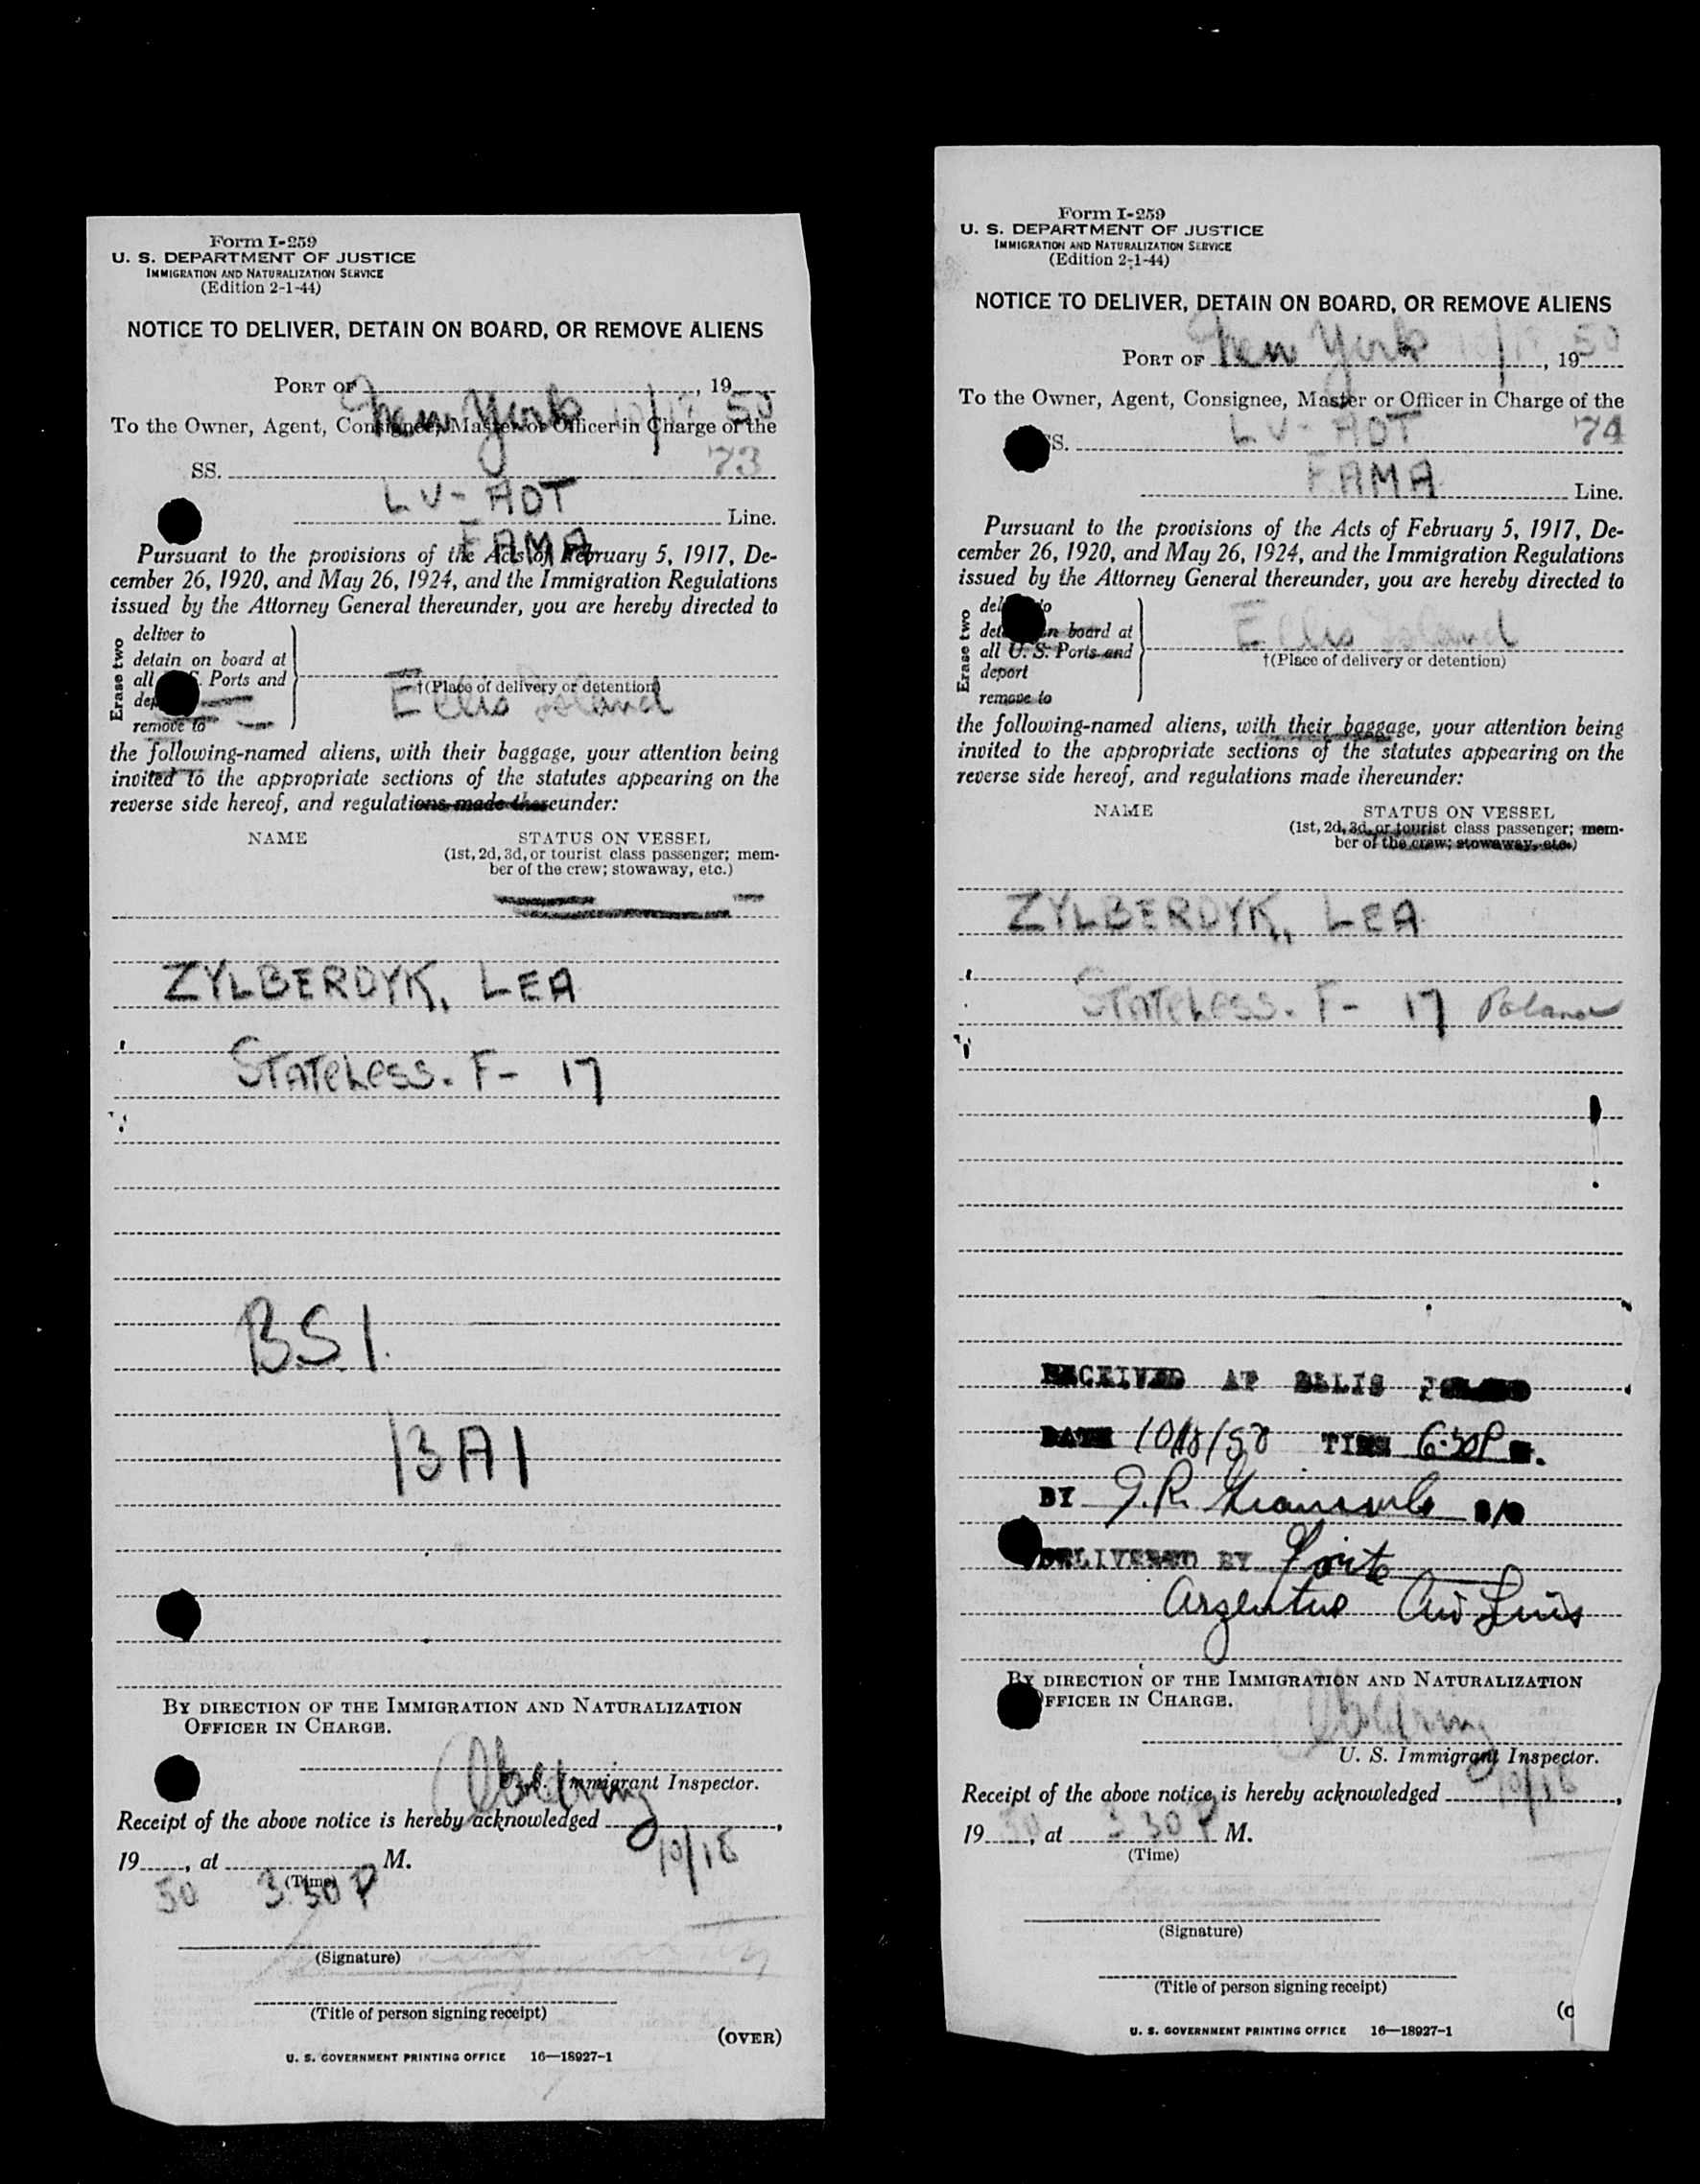 Form I-259
U. S. DEPARTMENT OF JUSTICE
IMMIGRATION AND NATURALIZATION SERVICE
(Edition 2-1-44)
NOTICE TO DELIVER, DETAIN ON BOARD, OR REMOVE ALIENS
PORT OF New York 10/17, 19 50
To the Owner, Agent, Consignee, Master or Officer in Charge of the
SS. LV-ADT 73
FAMA Line.
Pursuant to the provisions of the Acts of February 5, 1917, De-
cember 26, 1920, and May 26, 1924, and the Immigration Regulations
issued by the Attorney General thereunder, you are hereby directed to
Erase two
deliver to
detain on board at
all U. S. Ports and
deport
remove to
Ellis Island
†(Place of delivery or detention)
the following-named aliens, with their baggage, your attention being
invited to the appropriate sections of the statutes appearing on the
reverse side hereof, and regulations made thereunder:
NAME STATUS ON VESSEL
(1st, 2d, 3d, or tourist class passenger; mem-
ber of the crew; stowaway, etc.)
ZYLBERDYK, LEA
STATELESS. F- 17
BSI.
13A1
BY DIRECTION OF THE IMMIGRATION AND NATURALIZATION
OFFICER IN CHARGE.
U. S. Immigrant Inspector.
Receipt of the above notice is hereby acknowledged 10/18,
19 50, at 3.30 P M.
(Time)
(Signature)
(Title of person signing receipt)
(OVER)
U. S. GOVERNMENT PRINTING OFFICE 16—18927-1
Form I-259
U. S. DEPARTMENT OF JUSTICE
IMMIGRATION AND NATURALIZATION SERVICE
(Edition 2-1-44)
NOTICE TO DELIVER, DETAIN ON BOARD, OR REMOVE ALIENS
PORT OF New York 10/17, 19 50
To the Owner, Agent, Consignee, Master or Officer in Charge of the
SS. LV-ADT 74
FAMA Line.
Pursuant to the provisions of the Acts of February 5, 1917, De-
cember 26, 1920, and May 26, 1924, and the Immigration Regulations
issued by the Attorney General thereunder, you are hereby directed to
Erase two
deliver to
detain on board at
all U. S. Ports and
deport
remove to
Ellis Island
†(Place of delivery or detention)
the following-named aliens, with their baggage, your attention being
invited to the appropriate sections of the statutes appearing on the
reverse side hereof, and regulations made thereunder:
NAME STATUS ON VESSEL
(1st, 2d, 3d, or tourist class passenger; mem-
ber of the crew; stowaway, etc.)
ZYLBERDYK, LEA
STATELESS. F- 17 Poland
RECEIVED AT ELLIS ISLAND
DATE 10/18/50 TIME 6:30P M.
BY J.R.
DELIVERED BY
Argentine Air Lines
BY DIRECTION OF THE IMMIGRATION AND NATURALIZATION
OFFICER IN CHARGE.
U. S. Immigrant Inspector.
Receipt of the above notice is hereby acknowledged 10/18,
19 50, at 3 30 P M.
(Time)
(Signature)
(Title of person signing receipt)
U. S. GOVERNMENT PRINTING OFFICE 16—18927-1